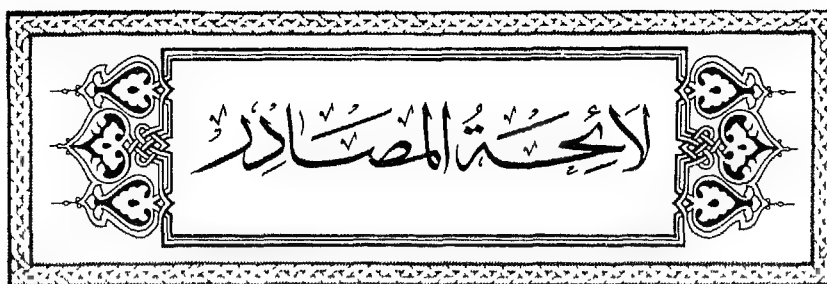 لَائِحَةُ المَصَادِرِ